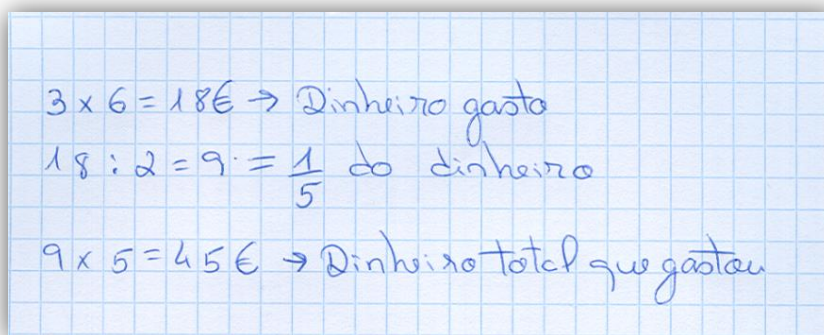 3 x 6 = 18€ → Dinheiro gasto
18 : 2 = 9 = 1/5 do dinheiro
9 x 5 = 45€ → Dinheiro total que gastou